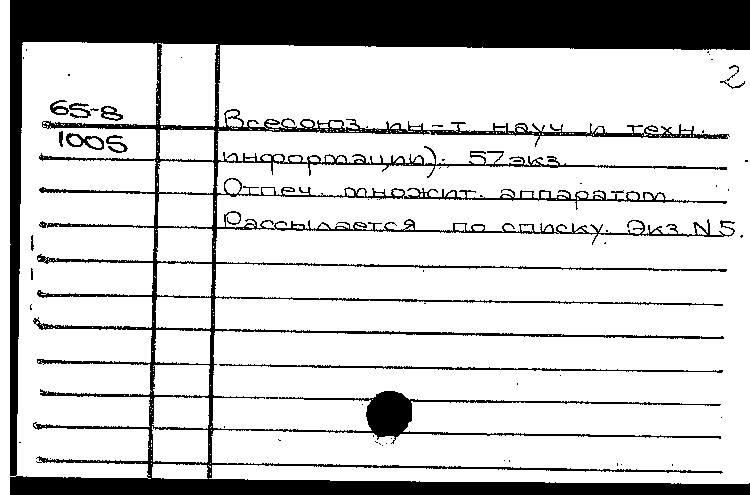 2
65-8
1005
Всесоюз. ин-т науч и техн.
информации). 57 экз.
Отпеч. множит. аппаратом
Рассылается по списку. Экз N5.